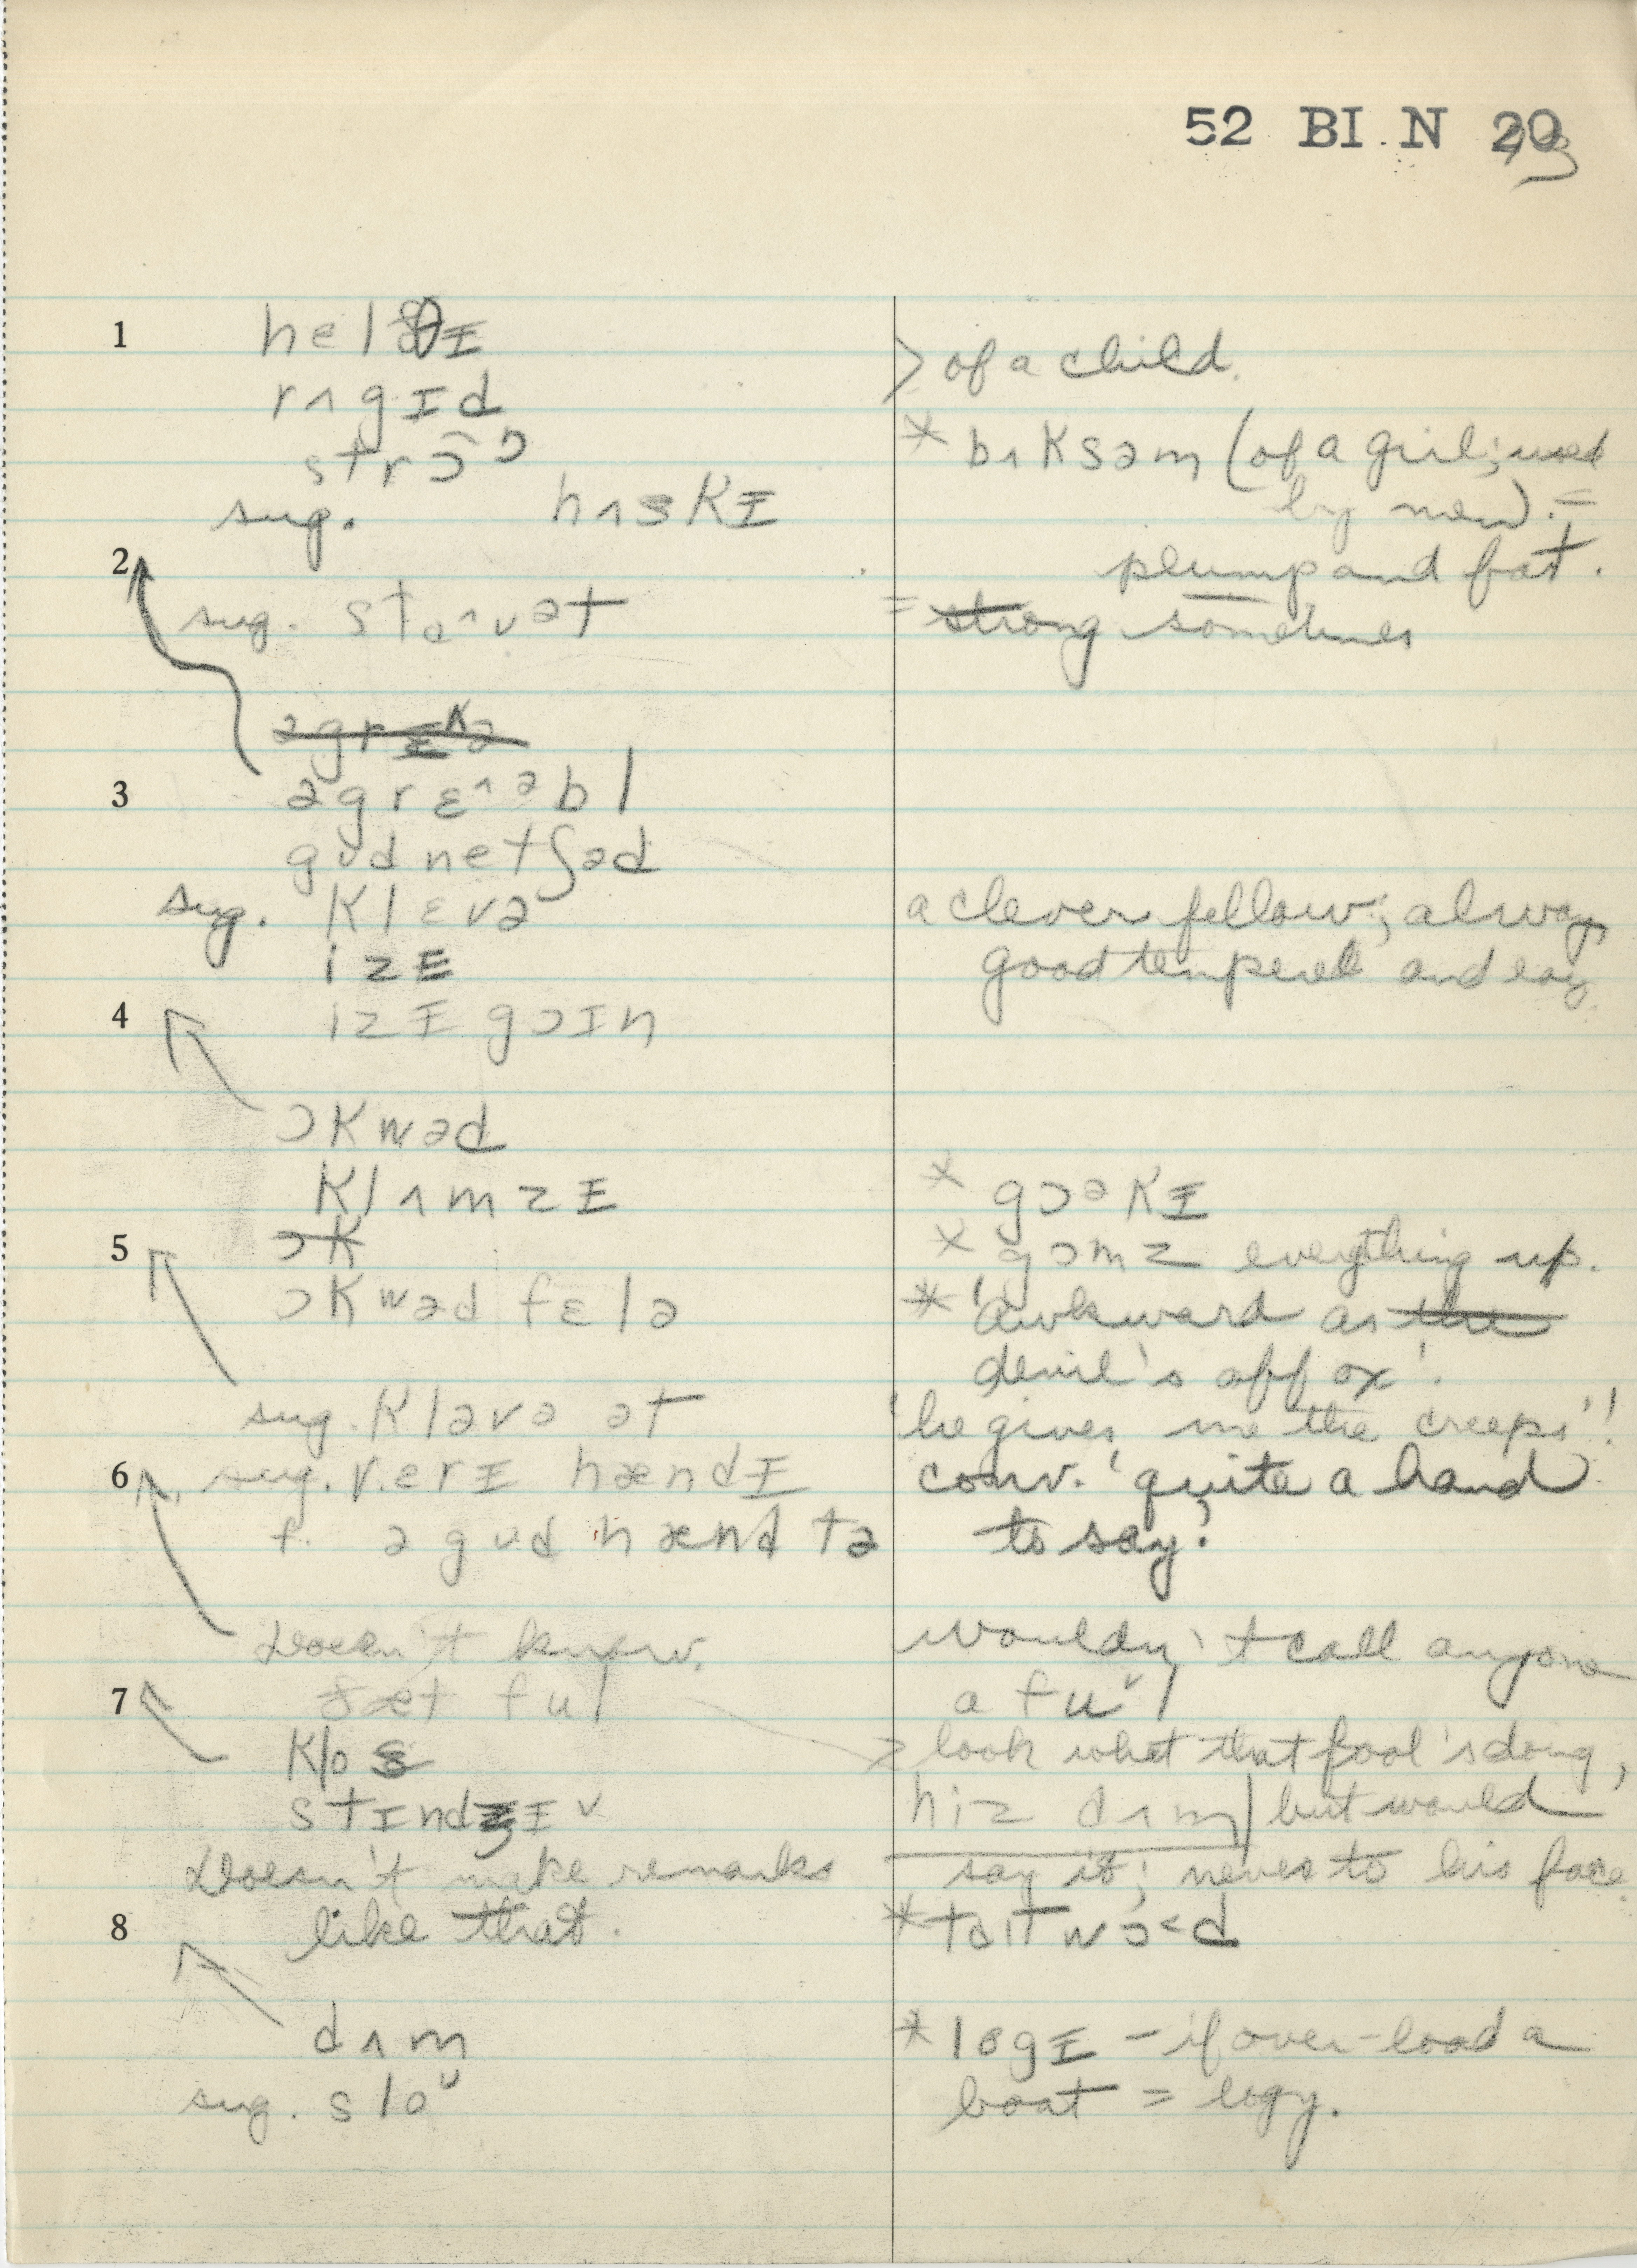 52 BI N 20
1 helθɪ
> of a child.
rʌgɪd
* bʌksəm (of a girl; used
strɔ̃ɔ
sug. hʌskɪ
by men). =
plump and fat.
2
sug. stəʌvət
= strong sometimes
agrɛʌə
3 əgrɛʌəbl
gʊd netʃəd
sug. klɛvə
a clever fellow; always
izɪ
good tempered and easy
4 izɪ goɪn
ɔkwəd
klʌmzɪ
* gɔəkɪ
5 ɔk
* gɔmz everything up.
ɔkwəd fɛlə
* 'awkward as the
devil's off ox'.
sug. kləvə ət
'he gives me the creeps'!
6 sug. verɪ hændɪ
conv. 'quite a hand
f. ə gʊd hænd tə
to say'.
Doesn't know.
wouldn't call anyone
7 ðæt ful
a fuᵛl
klos
> look what that fool's doing,
stɪndʒɪᵛ
hiz dʌm but would
Doesn't make remarks
say it; never to his face.
8 like that.
* taɪtwɔ<d
dʌm
* logɪ – if over-load a
sug. sloᵁ
boat = logy.